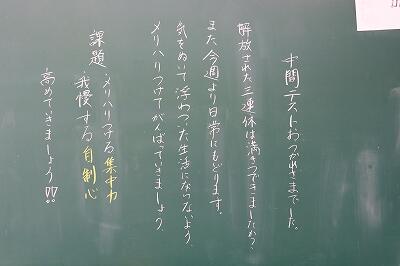 中間テストおつかれさまでした。
解放された三連休は満きつできましたか?
また今週より日常にもどります。
気をぬいて浮わついた生活にならないよう、
メリハリつけてがんばっていきましょう。
課題:メリハリつける集中力
我慢する自制心
高めていきましょう!!